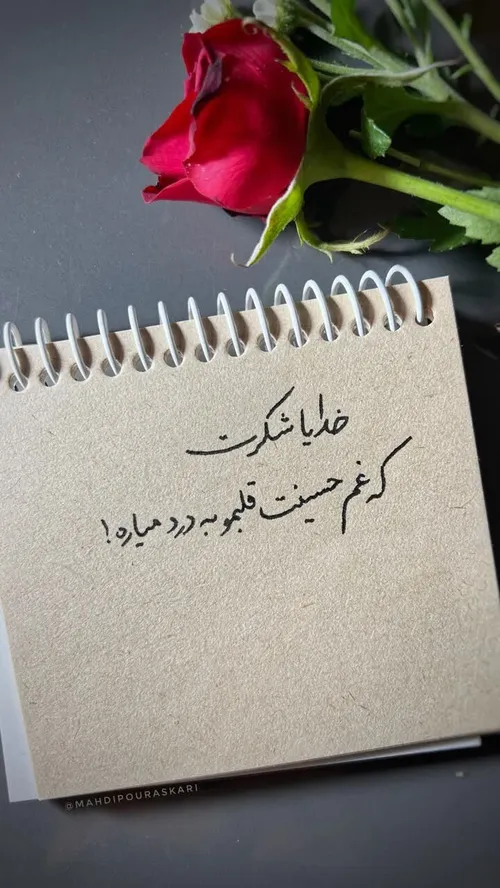 خدایا شکرت
که غم حسینت قلبمو به درد میاره!
@MAHDIPOURASKARI